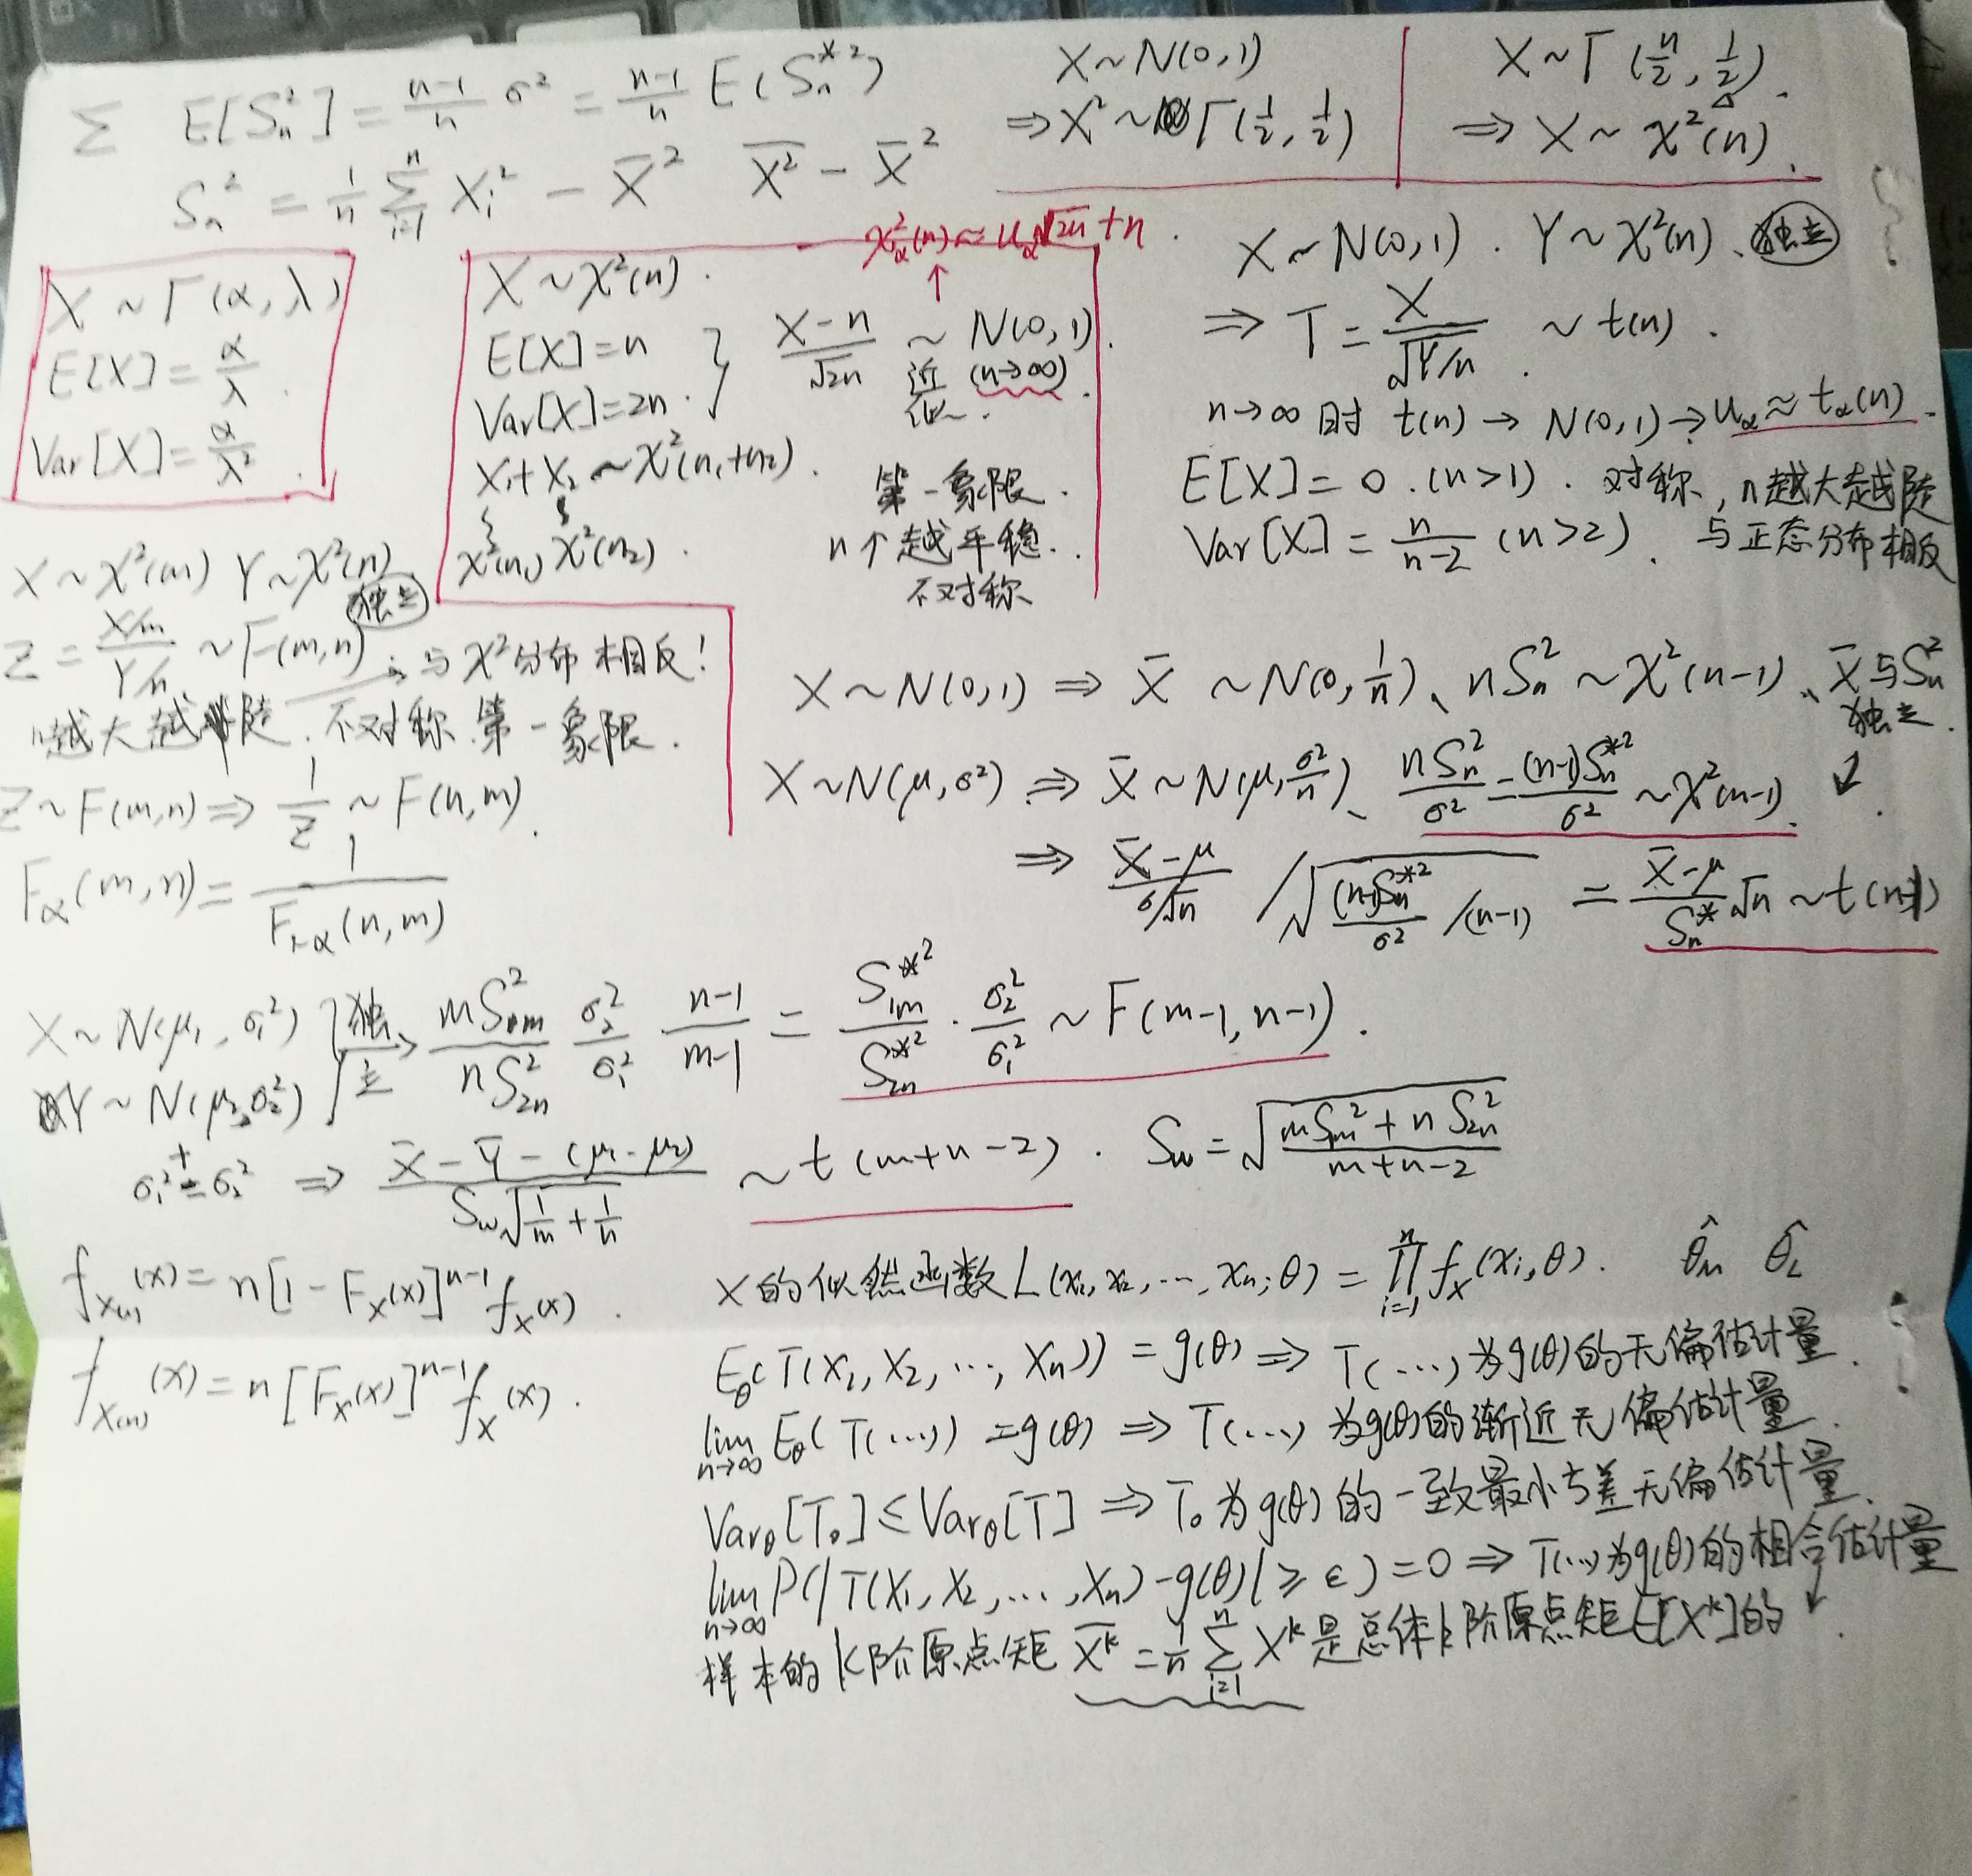 Σ E[Sₙ²] = (n-1)/n σ² = (n-1)/n E(Sₙ*²)
Sₙ² = 1/n Σᵢ₌₁ⁿ Xᵢ² - X̄² \overline{X²} - X̄²
X ~ N(0,1)
⇒ X² ~ Γ(1/2, 1/2)
X ~ Γ(n/2, 1/2).
⇒ X ~ χ²(n).
X ~ Γ(α, λ)
E[X] = α/λ.
Var[X] = α/λ².
χ²_α(n) ≈ u_α√2n + n.
↑
X ~ χ²(n).
E[X] = n
Var[X] = 2n.
} (X-n)/√2n ~ N(0,1).
近似. (n→∞).
X₁+X₂ ~ χ²(n₁+n₂).
χ²(n₁) χ²(n₂).
第一象限.
n↑越平稳..
不对称
X ~ N(0,1). Y ~ χ²(n)、独立
⇒ T = X/√(Y/n) ~ t(n).
n→∞时 t(n) → N(0,1) → u_α ≈ t_α(n).
E[X] = 0. (n>1). 对称, n越大越陡
Var[X] = n/(n-2) (n>2). 与正态分布相反
X ~ χ²(m) Y ~ χ²(n) 独立
Z = (X/m)/(Y/n) ~ F(m,n) 与χ²分布相反!
n越大越陡. 不对称. 第一象限.
Z ~ F(m,n) ⇒ 1/Z ~ F(n,m).
F_α(m,n) = 1/F₁₋α(n,m)
X ~ N(0,1) ⇒ X̄ ~ N(0, 1/n)、nSₙ² ~ χ²(n-1)、X̄与Sₙ²
独立.
X ~ N(μ,σ²) ⇒ X̄ ~ N(μ, σ²/n)、nSₙ²/σ² = (n-1)Sₙ*²/σ² ~ χ²(n-1). ↙
⇒ (X̄-μ)/(σ/√n) / √((n-1)Sₙ*²/σ² /(n-1)) = (X̄-μ)/Sₙ* √n ~ t(n-1)
X ~ N(μ₁, σ₁²)
Y ~ N(μ₂, σ₂²)
独立→ mS₁ₘ²/nS₂ₙ² σ₂²/σ₁² (n-1)/(m-1) = S₁ₘ*²/S₂ₙ*² · σ₂²/σ₁² ~ F(m-1, n-1).
+
σ₁² = σ₂² ⇒ (X̄ - Ȳ - (μ₁-μ₂))/(S_w√(1/m + 1/n)) ~ t(m+n-2). S_w = √((mS₁ₘ² + nS₂ₙ²)/(m+n-2))
f_X₍₁₎(x) = n[1 - F_X(x)]ⁿ⁻¹ f_X(x).
f_X₍ₙ₎(x) = n[F_X(x)]ⁿ⁻¹ f_X(x).
X的似然函数 L(x₁, x₂, …, xₙ; θ) = Πᵢ₌₁ⁿ f_X(xᵢ, θ). θ̂_M θ̂_L
E_θ(T(X₁, X₂, …, Xₙ)) = g(θ) ⇒ T(…)为g(θ)的无偏估计量.
lim n→∞ E_θ(T(…)) = g(θ) ⇒ T(…)为g(θ)的渐近无偏估计量.
Var_θ[T₀] ≤ Var_θ[T] ⇒ T₀为g(θ)的一致最小方差无偏估计量.
lim n→∞ P(|T(X₁, X₂, …, Xₙ) - g(θ)| ≥ ε) = 0 ⇒ T(…)为g(θ)的相合估计量
样本的k阶原点矩 \overline{Xᵏ} = 1/n Σᵢ₌₁ⁿ Xᵏ 是总体k阶原点矩E[Xᵏ]的 ↙.